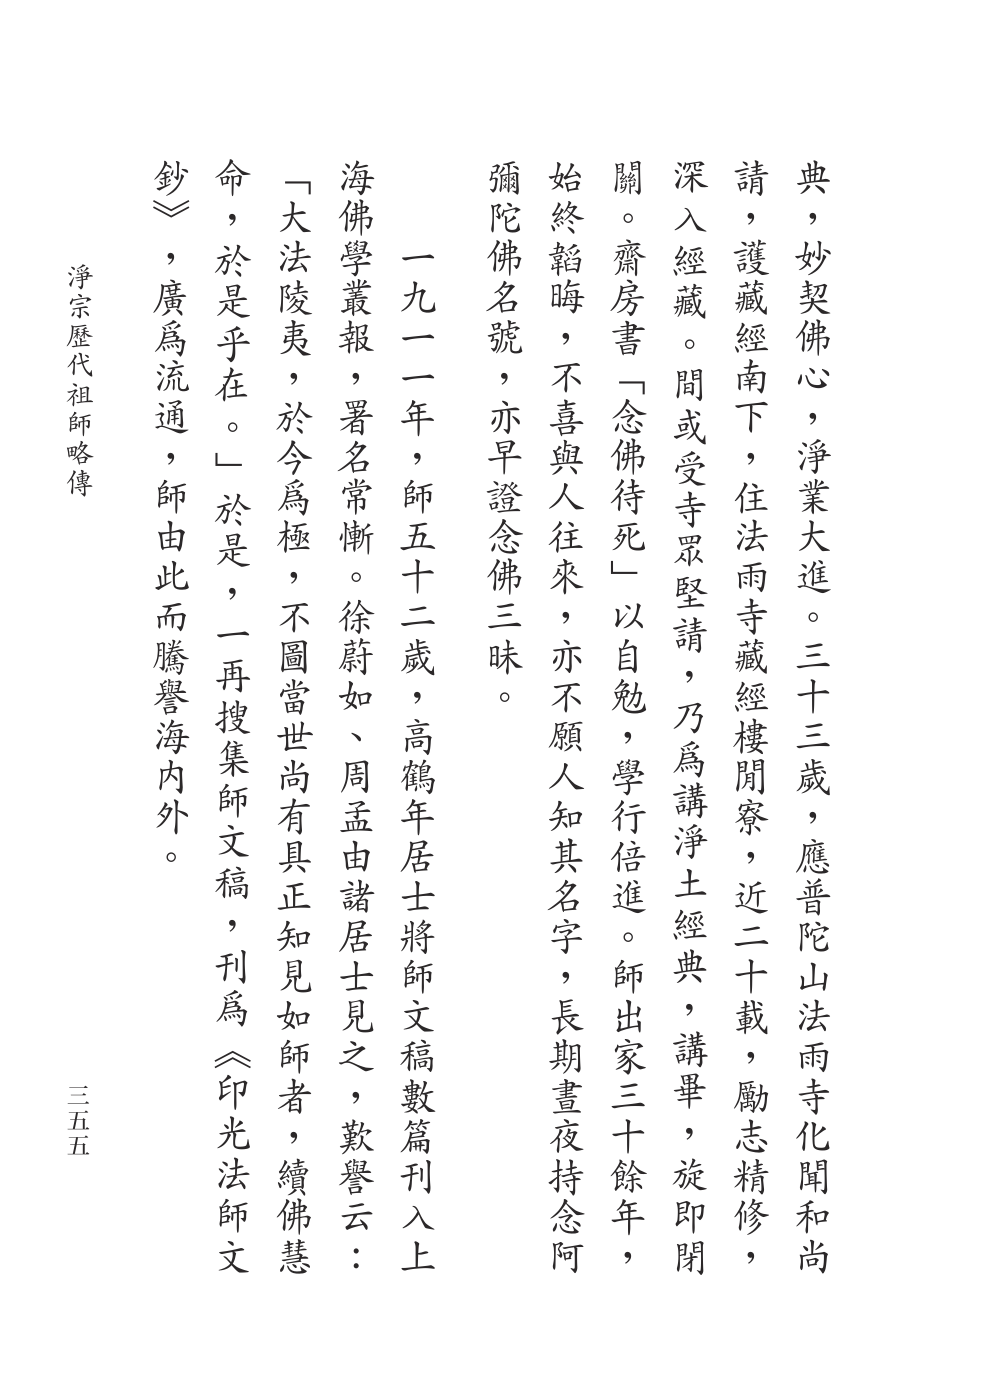 典，妙契佛心，淨業大進。三十三歲，應普陀山法雨寺化聞和尚
請，護藏經南下，住法雨寺藏經樓閒寮，近二十載，勵志精修，
深入經藏。間或受寺眾堅請，乃為講淨土經典，講畢，旋即閉
關。齋房書「念佛待死」以自勉，學行倍進。師出家三十餘年，
始終韜晦，不喜與人往來，亦不願人知其名字，長期晝夜持念阿
彌陀佛名號，亦早證念佛三昧。
一九一一年，師五十二歲，高鶴年居士將師文稿數篇刊入上
海佛學叢報，署名常慚。徐蔚如、周孟由諸居士見之，歎譽云：
「大法陵夷，於今為極，不圖當世尚有具正知見如師者，續佛慧
命，於是乎在。」於是，一再搜集師文稿，刊為《印光法師文
鈔》，廣為流通，師由此而騰譽海內外。
淨宗歷代祖師略傳
三五五